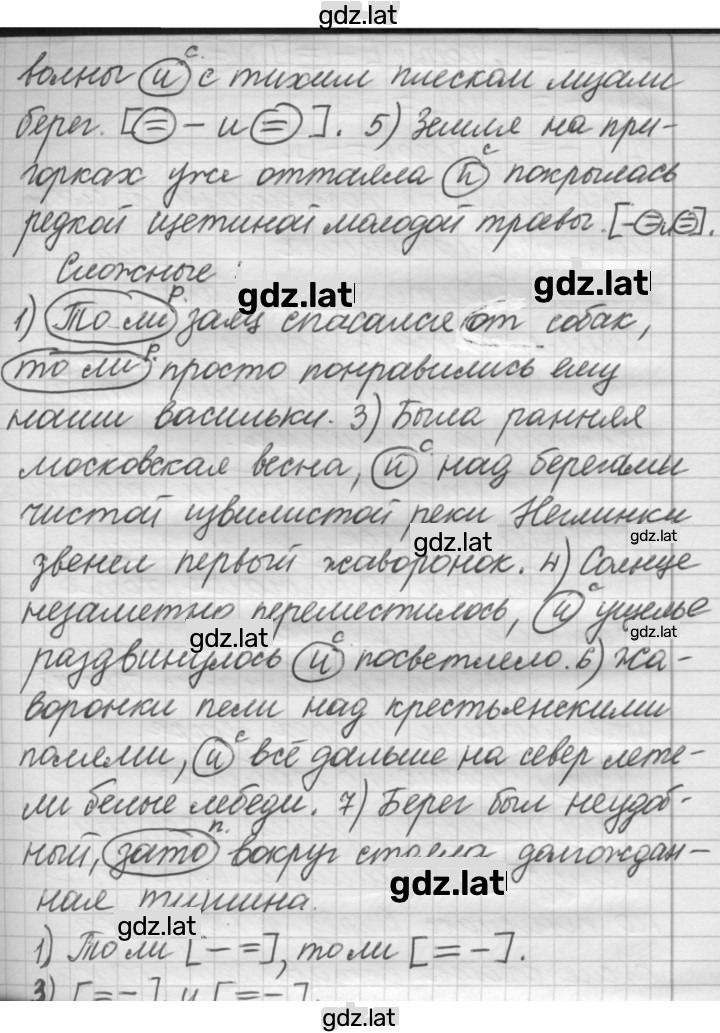 gdz.lat
волны и с тихим плеском лизали
берег. [= – и =]. 5) Земля на при-
горках уже оттаяла и покрылась
редкой щетиной молодой травы. [– = и =].
Сложные :
gdz.lat gdz.lat
1) То ли заяц спасался от собак,
то ли просто понравились ему
наши васильки. 3) Была ранняя
московская весна, и над берегами
чистой извилистой реки Неглинки
gdz.lat gdz.lat
звенел первый жаворонок. 4) Солнце
незаметно переместилось, и ущелье
gdz.lat gdz.lat
раздвинулось и посветлело. 6) Жа-
воронки пели над крестьянскими
полями, и всё дальше на север лете-
ли белые лебеди. 7) Берег был неудоб-
ный, зато вокруг стояла долгождан-
gdz.lat
ная тишина.
gdz.lat
1) То ли [– =], то ли [= –].
3) [= –], и [= –].
gdz.lat